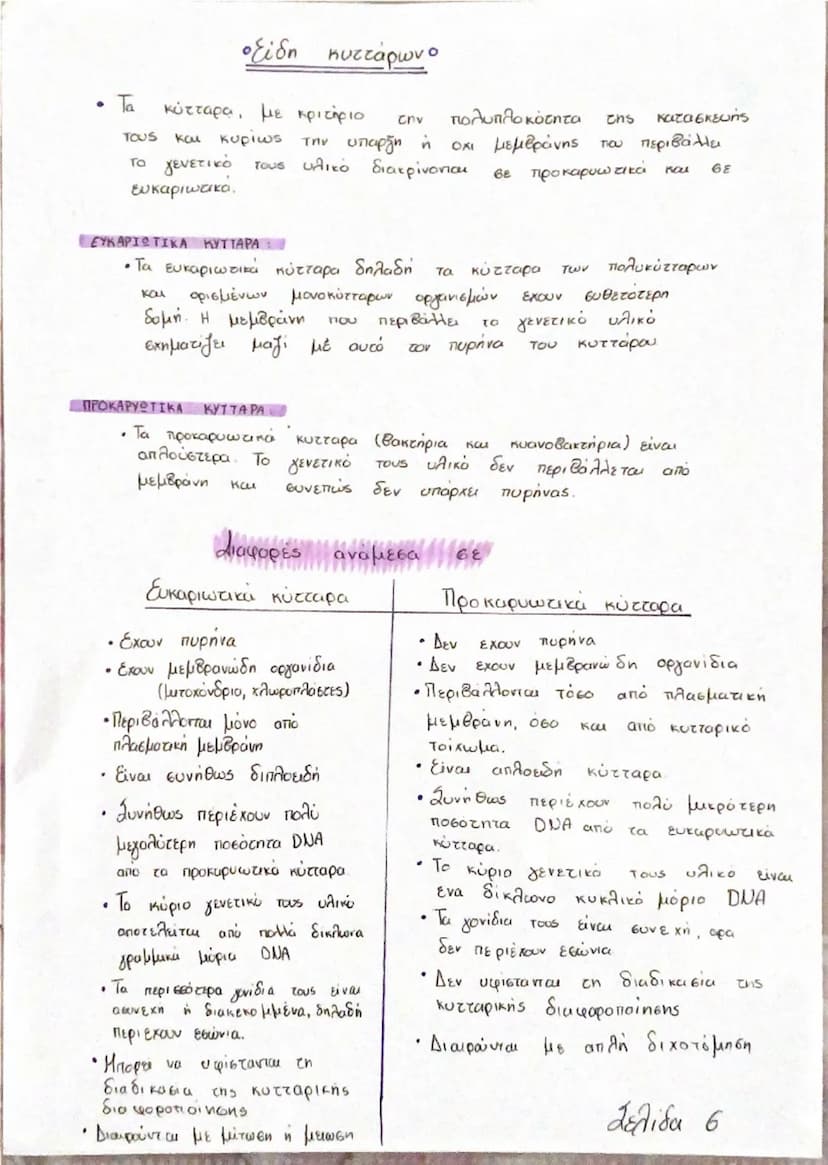 Είδη κυττάρων
• Τα κύτταρα, με κριτήριο την πολυπλοκότητα της κατασκευής
τους και κυρίως την υπαρξη ή οχι μεμβράνης που περιβάλλει
το γενετικό τους υλικό διακρίνονται σε προκαρυωτικά και σε
ευκαριωτικά.
ΕΥΚΑΡΙΩΤΙΚΑ ΚΥΤΤΑΡΑ:
• Τα ευκαριωτικά κύτταρα δηλαδή τα κύτταρα των πολυκύτταρων
και ορισμένων μονοκύτταρων οργανισμών έχουν συθετότερη
δομή. Η μεμβράνη που περιβάλλει το γενετικό υλικό
σχηματίζει μαζί μέ αυτό τον πυρήνα του κυττάρου
ΠΡΟΚΑΡΥΩΤΙΚΑ ΚΥΤΤΑΡΑ:
• Τα προκαρυωτικά κυτταρα (βακτήρια και κυανοβακτήρια) είναι
απλούστερα. Το γενετικό τους υλικό δεν περιβάλλεται από
μεμβράνη και συνεπώς δεν υπάρχει πυρήνας.
Διαφορές ανάμεσα σε
Ευκαριωτικά κύτταρα
• Έχουν πυρήνα
• Έχουν μεμβρανώδη οργανίδια
(μιτοχόνδριο, χλωροπλάστες)
• Περιβάλλονται μόνο από
πλασματική μεμβράνη
• Είναι συνήθως διπλοειδή
• Συνήθως περιέχουν πολύ
μεγαλύτερη ποσότητα DNA
από τα προκαρυωτικά κύτταρα
• Το κύριο γενετικό τους υλικό
αποτελείται από πολλά δίκλωνα
γραμμικά μόρια DNA
• Τα περισσότερα γονίδια τους είναι
ασυνεχή ή διακεκομμένα, δηλαδή
περιέχουν εσώνια.
• Μπορεί να υφίστανται τη
διαδικασία της κυτταρικής
διαφοροποίησης
• Διαιρούνται με μίτωση ή μείωση
Προκαρυωτικά κύτταρα
• Δεν εχουν πυρήνα
• Δεν έχουν μεμβρανώδη οργανίδια
• Περιβάλλονται τόσο από πλασματική
μεμβράνη, όσο και από κυτταρικό
τοίχωμα.
• Είναι απλοειδή κύτταρα
• Συνήθως περιέχουν πολύ μικρότερη
ποσότητα DNA από τα ευκαρυωτικά
κύτταρα.
• Το κύριο γενετικό τους υλικό είναι
ένα δίκλωνο κυκλικό μόριο DNA
• Τα γονίδια τους είναι συνεχή, αρα
δεν περιέχουν εσώνια
• Δεν υφίστανται τη διαδικασία της
κυτταρικής διαφοροποίησης
• Διαιρούνται με απλή διχοτόμηση
Σελίδα 6